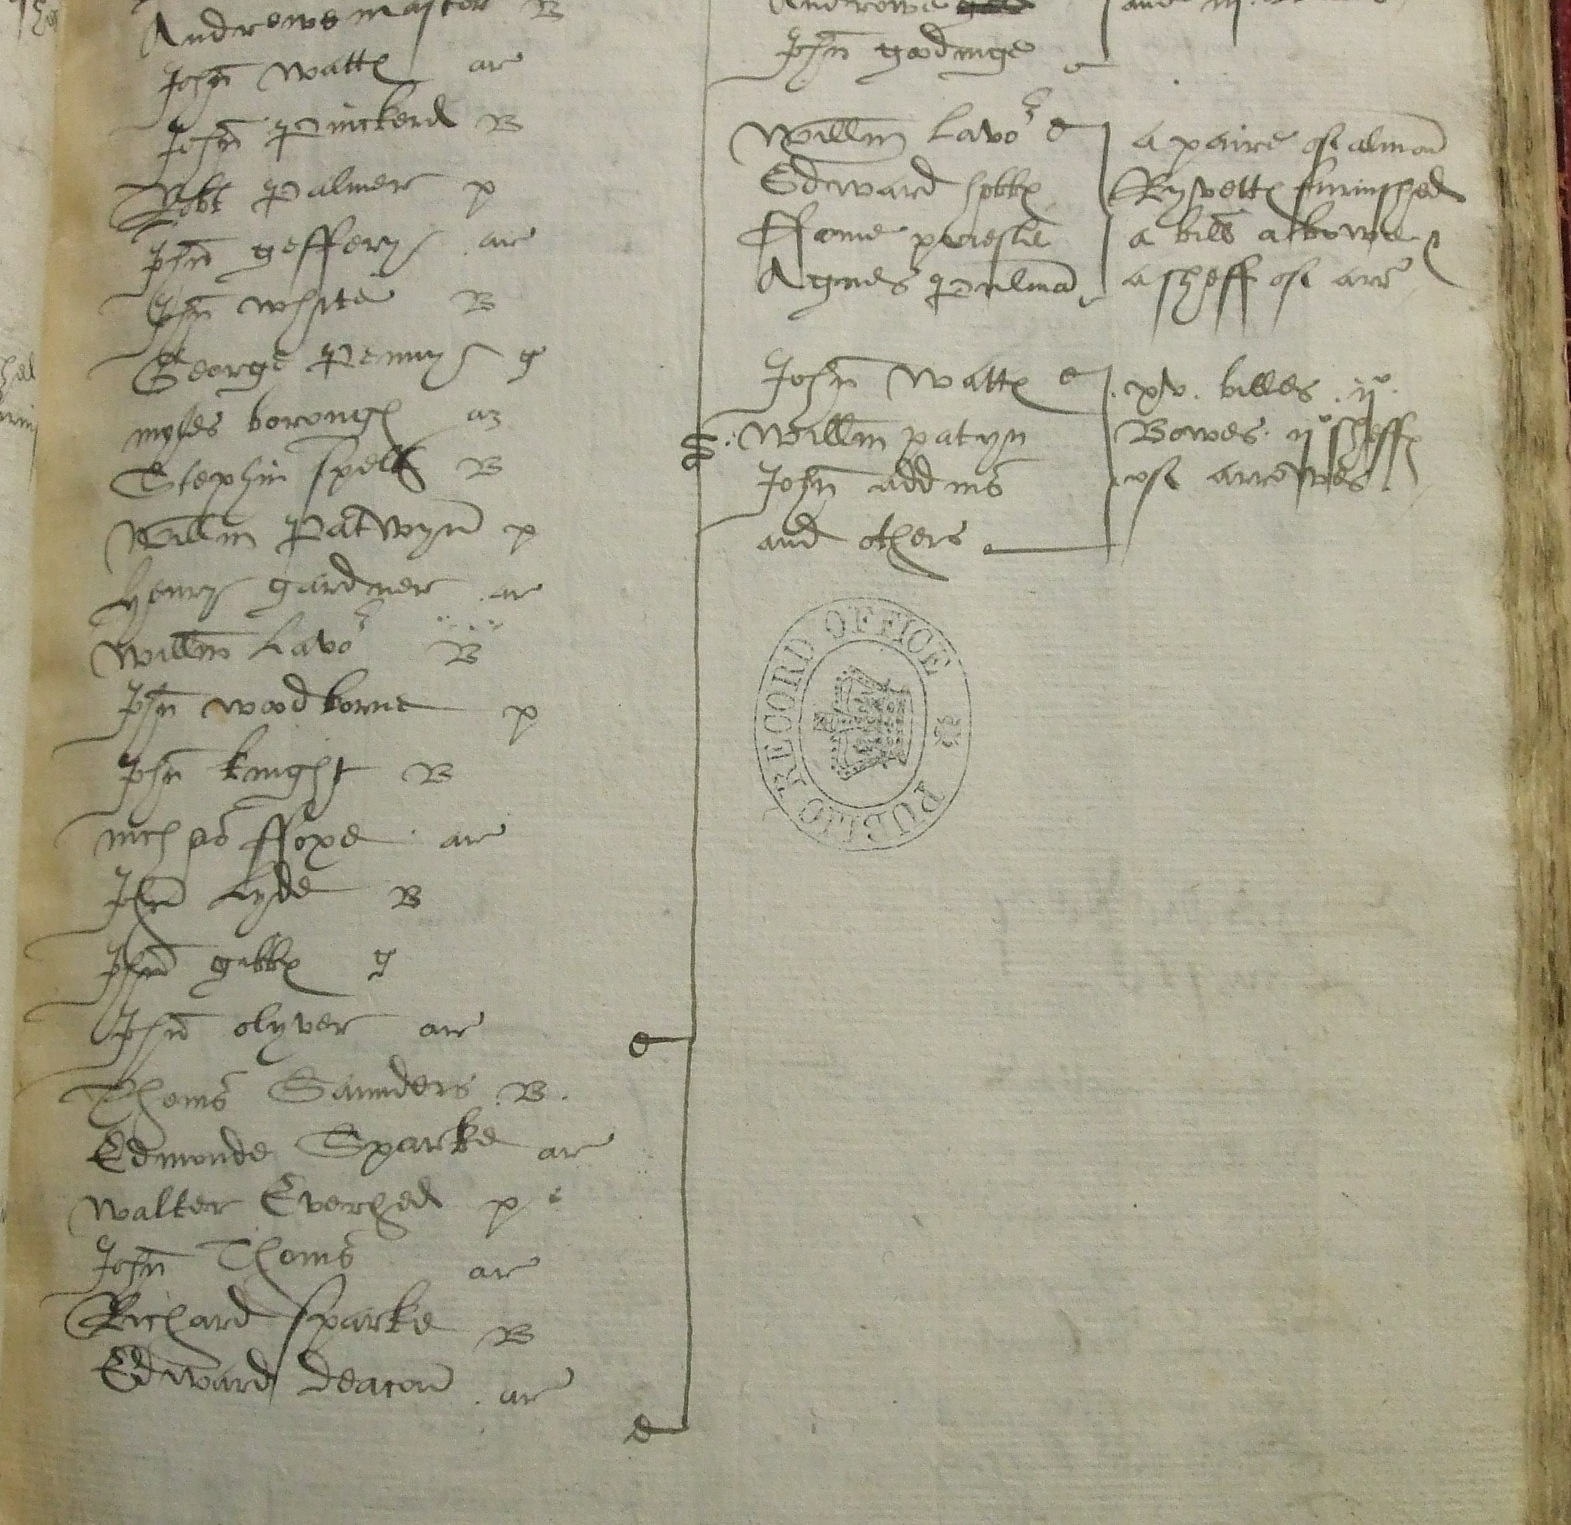 Andrewe master B
John Watt ar
John Pinckerd B
Robt Palmer p
John Geffery ar
John White B
George Penny g
myles borough ar
Stephin Spell B
Willm Patwyn p
Henry gardner ar
Willm Lavor B
John Woodborne p
John Knight B
Nichas ffoxe ar
John Lyde B
John gibbs g
John olyver ar
Thoms Saunders B.
Edmonde Sparke ar
Walter Evershed p
John Thoms ar
Richard Sparke B
Edward Deacon ar
John goodinge
Willm Lavor
Edward
Agnes Pulman
a paire of alman
Ryvetts furnished
a bill a bowe
a sheff of arr
John Watts
Willm patwyn
John addms
and others
xv. billes. ij
Bowes. ij sheffs
of arrowes.
PUBLIC RECORD OFFICE